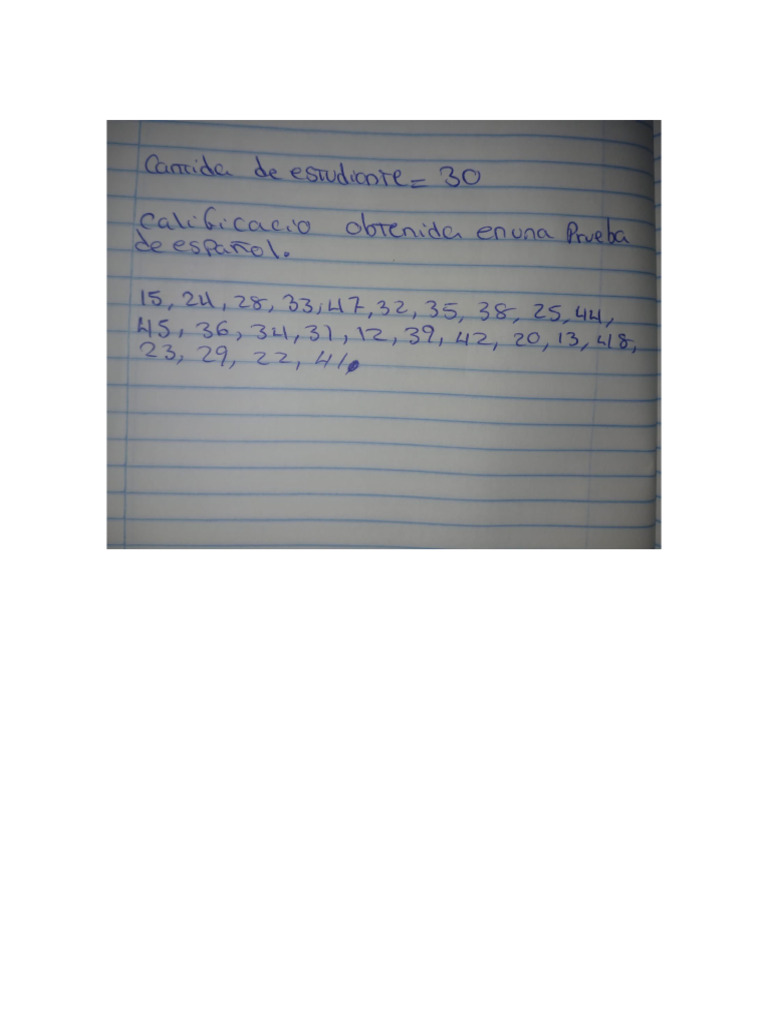 Cantida de estudiante = 30
Calificacio obtenida en una Prueba
de español.
15, 24, 28, 33, 47, 32, 35, 38, 25, 44,
45, 36, 34, 31, 12, 39, 42, 20, 13, 48,
23, 29, 22, 41.